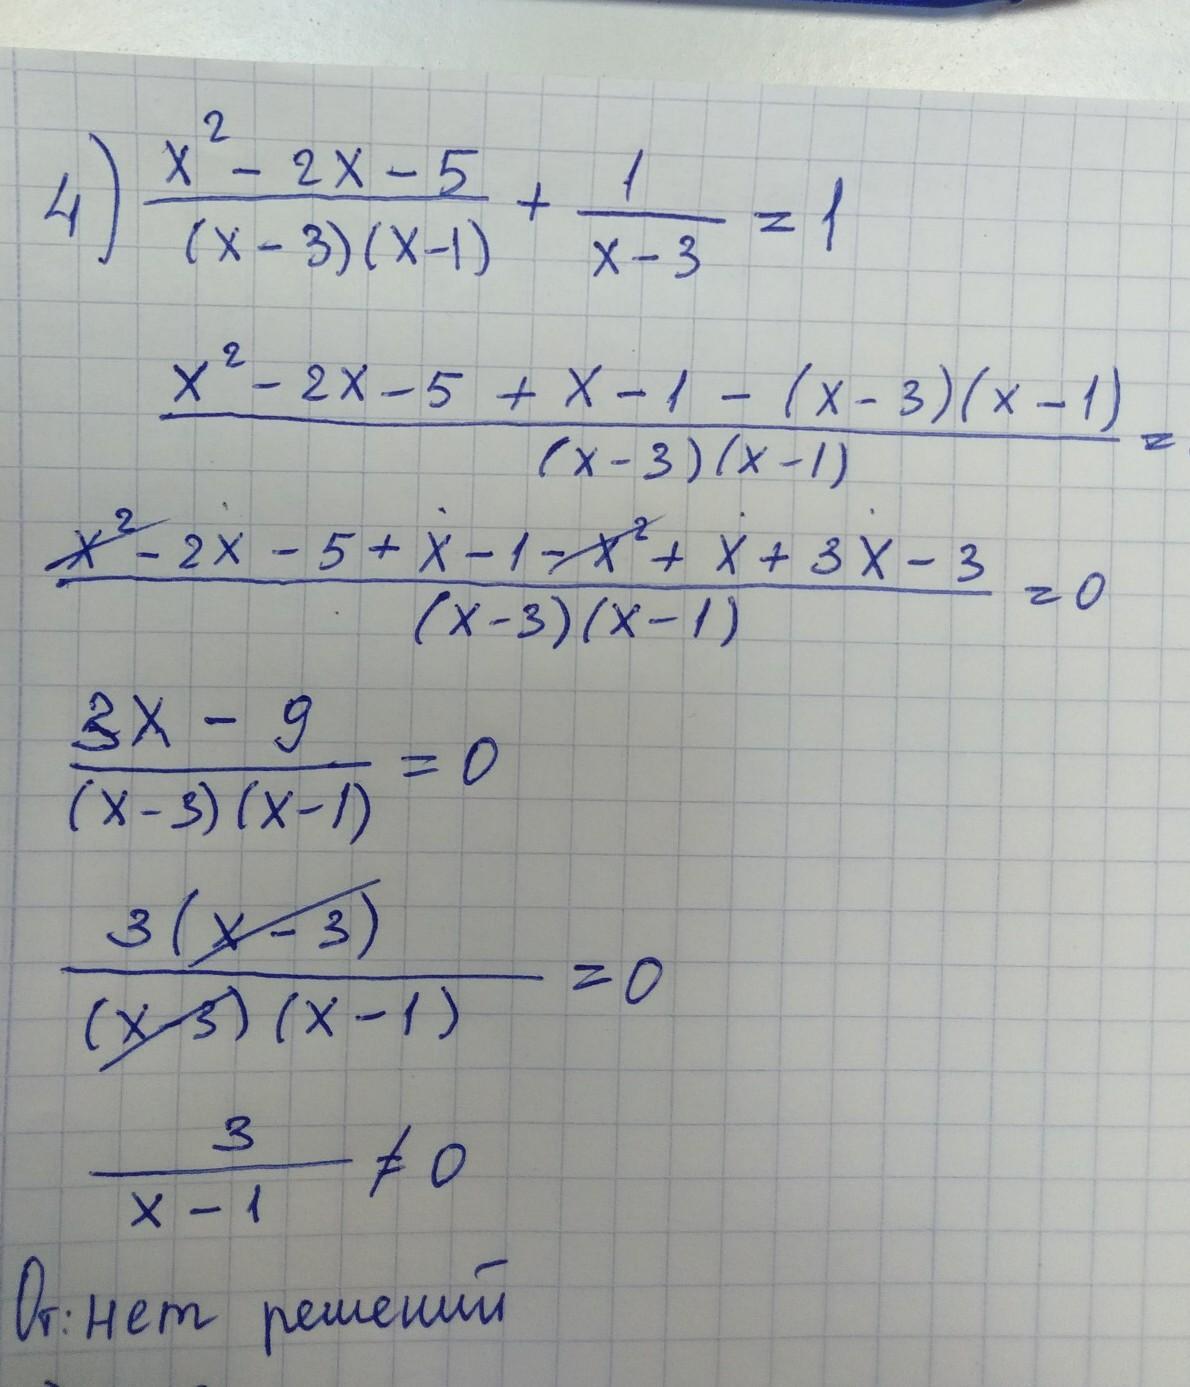 4) x² - 2x - 5 / (x - 3)(x - 1) + 1 / x - 3 = 1
x² - 2x - 5 + x - 1 - (x - 3)(x - 1) / (x - 3)(x - 1) =
x² - 2x - 5 + x - 1 - x² + x + 3x - 3 / (x - 3)(x - 1) = 0
3x - 9 / (x - 3)(x - 1) = 0
3(x - 3) / (x - 3)(x - 1) = 0
3 / x - 1 ≠ 0
От: нет решений